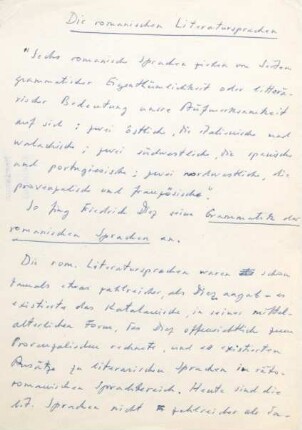 Die romanischen Literatursprachen
"Sechs romanische Sprachen ziehen von Seiten
grammatischer Eigenthümlichkeit oder litterä-
rischer Bedeutung unsre Aufmerksamkeit
auf sich: zwei östliche, die italienische und
walachische; zwei südwestliche, die spanische
und portugiesische; zwei nordwestliche, die
provenzalische und französische".
So fing Friedrich Diez seine Grammatik der
romanischen Sprachen an.
Die rom. Literatursprachen waren schon
damals etwas zahlreicher, als Diez angab – es
existierte das Katalanische, in seiner mittel-
alterlichen Form, das Diez offensichtlich zum
Provenzalischen rechnete, und es existierten
Ansätze zu literarischen Sprachen im räto-
romanischen Sprachbereich. Heute sind die
Lit. Sprachen nicht zahlreicher als